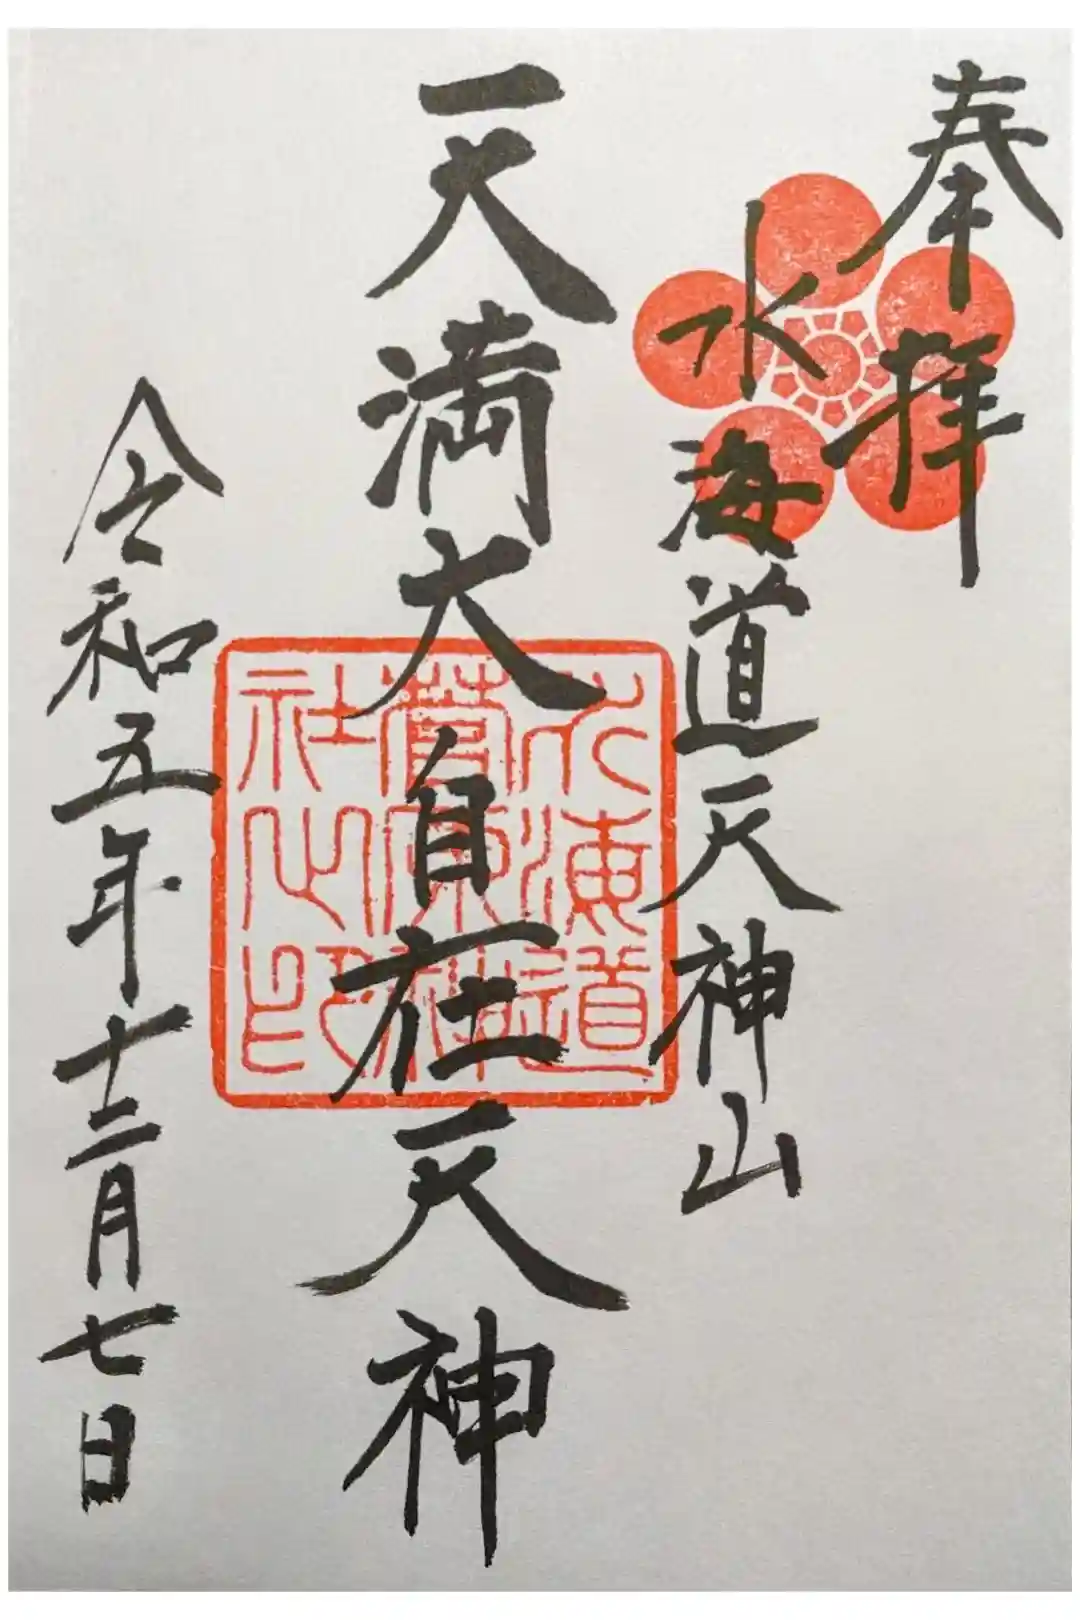 奉拝
水海道天神山
天満大自在天神
令和五年十二月七日
水海道
菅原神
社之印